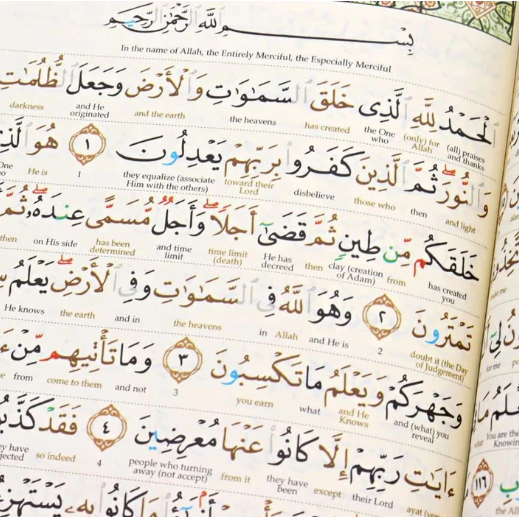 بِسْمِ ٱللَّهِ ٱلرَّحْمَٰنِ ٱلرَّحِيمِ
In the name of Allah, the Entirely Merciful, the Especially Merciful
ٱلْحَمْدُ لِلَّهِ ٱلَّذِى خَلَقَ ٱلسَّمَٰوَٰتِ وَٱلْأَرْضَ وَجَعَلَ ٱلظُّلُمَٰتِ
(all) praises and thanks (only) for Allah the One who has created the heavens and the earth and He originated darkness
وَٱلنُّورَ ۖ ثُمَّ ٱلَّذِينَ كَفَرُوا۟ بِرَبِّهِمْ يَعْدِلُونَ ١ هُوَ
and light then those who disbelieve toward their Lord they equalize (associate Him with the others) 1 He is
خَلَقَكُم مِّن طِينٍ ثُمَّ قَضَىٰٓ أَجَلًا ۖ وَأَجَلٌ مُّسَمًّى عِندَهُۥ ۖ ثُمَّ
has created you from clay (creation of Adam) then He has decreed time limit (death) and time limit has been determined on His side then
تَمْتَرُونَ ٢ وَهُوَ ٱللَّهُ فِى ٱلسَّمَٰوَٰتِ وَفِى ٱلْأَرْضِ ۖ يَعْلَمُ
doubt it (the Day of Judgement) 2 and He is Allah in the heavens and in the earth He knows
وَجَهْرَكُمْ وَيَعْلَمُ مَا تَكْسِبُونَ ٣ وَمَا تَأْتِيهِم مِّنْ
and (what) you reveal and He Knows what you earn 3 and not come to them from
ءَايَٰتِ رَبِّهِمْ إِلَّا كَانُوا۟ عَنْهَا مُعْرِضِينَ ٤ فَقَدْ
ayat their Lord except they have been from it people who turning away (not accept) 4 so indeed
كَانُوا۟ بِهِۦ
١١٦